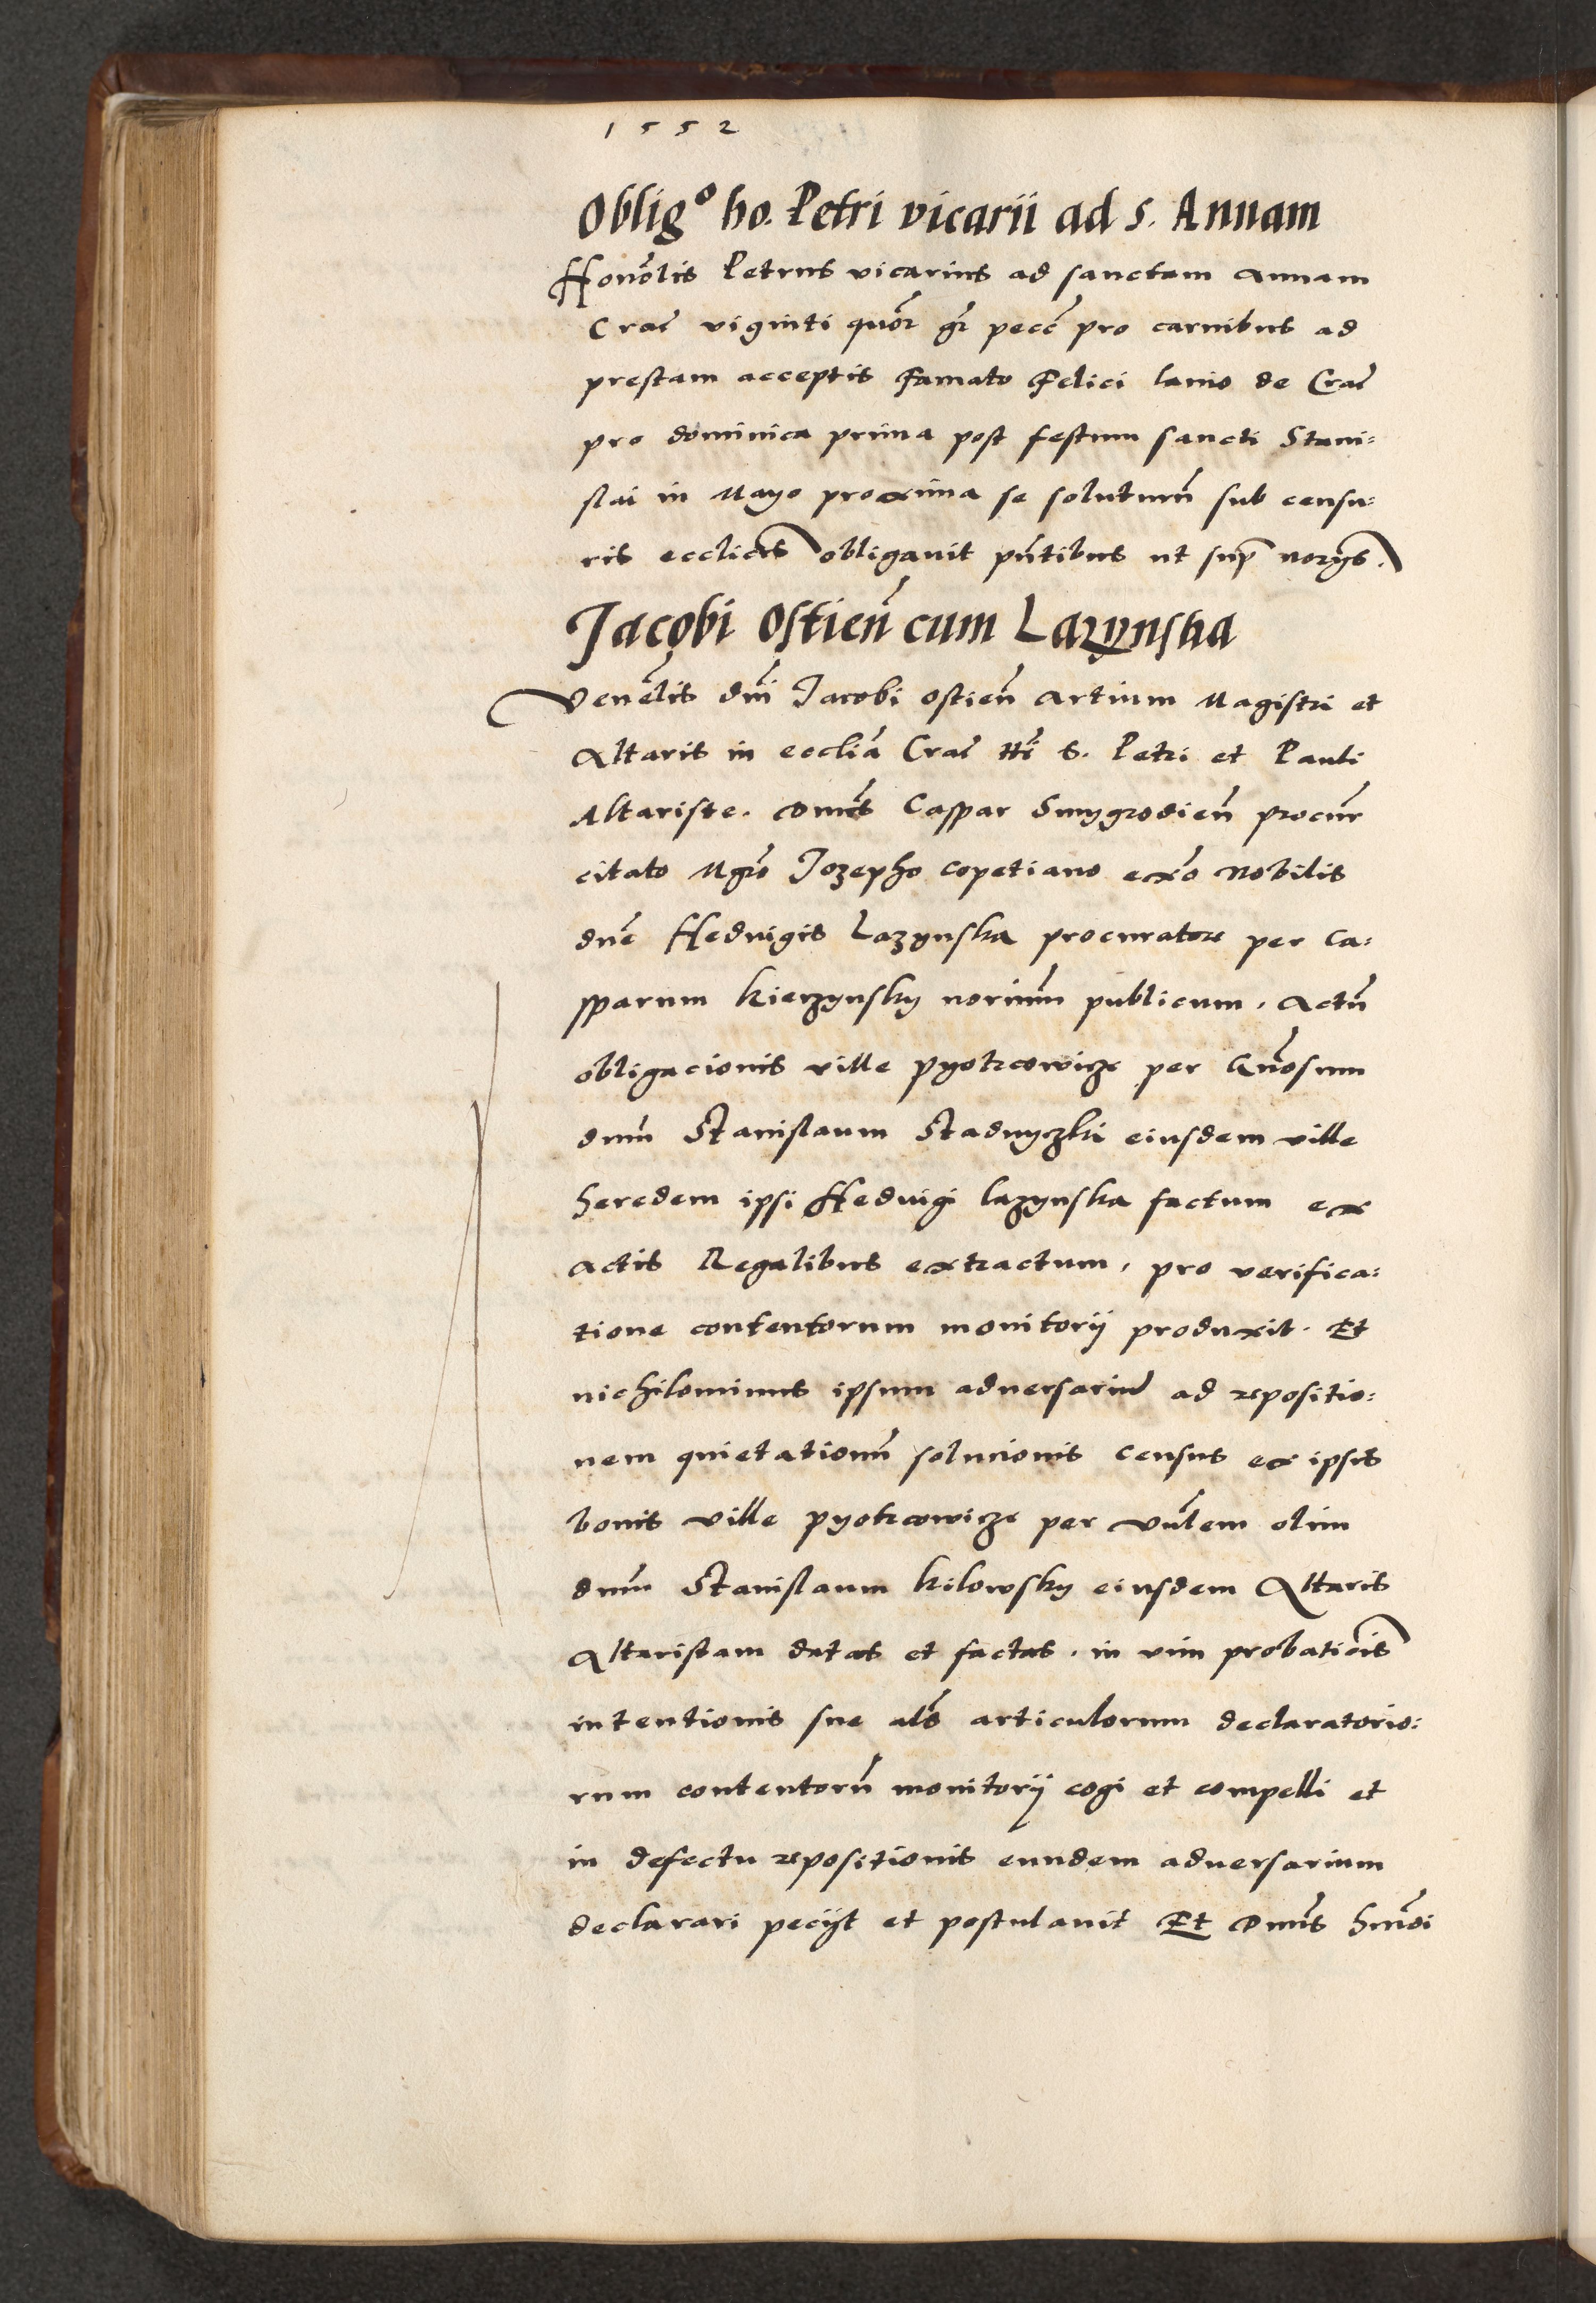 1552
Oblig° ho. Petri vicarii ad s. Annam
Honorlis Petrus vicarius ad sanctam Annam
Crac viginti quor gr pecc pro carnibus ad
prestam acceptis famato Felici lanio de Crac
pro dominica prima post festum sancti Stani=
slai in Mayo proxima se soluturu sub censu=
ris ecclicis obligavit pntibus ut sup norys.
Jacobi Ostien cum Lazynska
Venerlis dni Jacobi ostien Artium Magistri et
Altaris in ecclia Crac tti S. Petri et Pauli
Altariste. Domus Caspar Smygrodien procur
citato Mgro Jozepho copetiano exo Nobilis
dne Heduigis Lazynska procuratore per Ca=
sparum Kierzynsky norium publicum, Actum
obligacionis ville pyotrcowicze per Gnosum
dnum Stanislaum Stadnyczki eiusdem ville
heredem ipsi Heduigi lazynska factum ex
actis Regalibus extractum, pro verifica=
tione contentorum monitorii produxit. Et
nichilominus ipsum aduersarium ad repositio=
nem quietationum solucionis census ex ipsis
bonis ville pyotrcowicze per vnlem olim
dnum Stanislaum Kilowsky eiusdem Altaris
Altaristam datas et factas. in vim probationis
intentionis sue als articulorum declaratorio=
rum contentoru monitorij cogi et compelli et
in defectu repositionis eundem aduersarium
declarari pecijt et postulauit Et Dnus hmoi